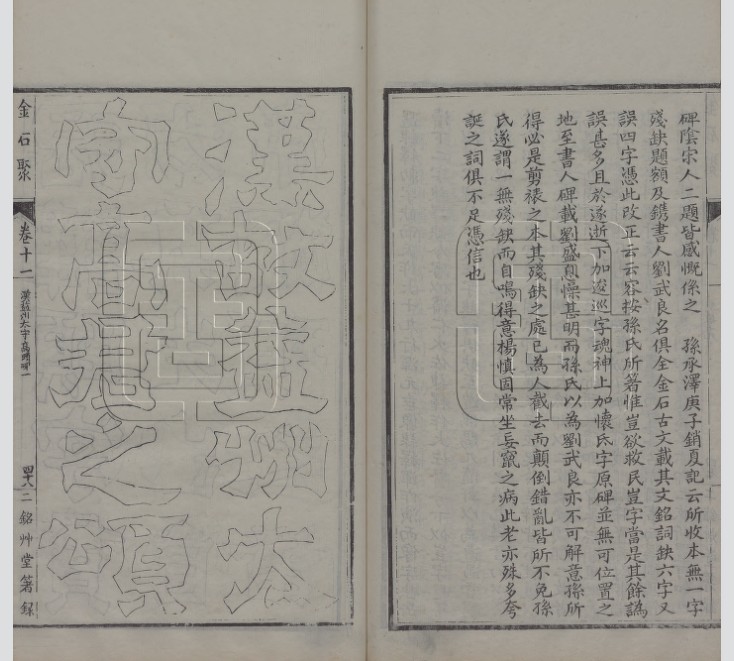 碑陰宋人二題皆感慨係之　孫承澤庚子銷夏記云所收本無一字
殘缺題額及鐫書人劉武良名俱全金石古文載其文銘詞缺六字又
誤四字憑此改正云云容按孫氏所箸惟豈欲救民豈字當是其餘譌
誤甚多且於遂逝下加逡巡字魂神上加懷氐字原碑並無可位置之
地至書人碑載劉盛息懆甚明而孫氏以為劉武良亦不可解意孫所
得必是剪裱之本其殘缺之處已為人截去而顛倒錯亂皆所不免孫
氏遂謂一無殘缺而自鳴得意楊慎固常坐妄竄之病此老亦殊多夸
誕之詞俱不足憑信也
漢故益州太
守高君之頌
金石聚
卷十一
漢益州太守高頤碑一
二銘艸堂箸錄